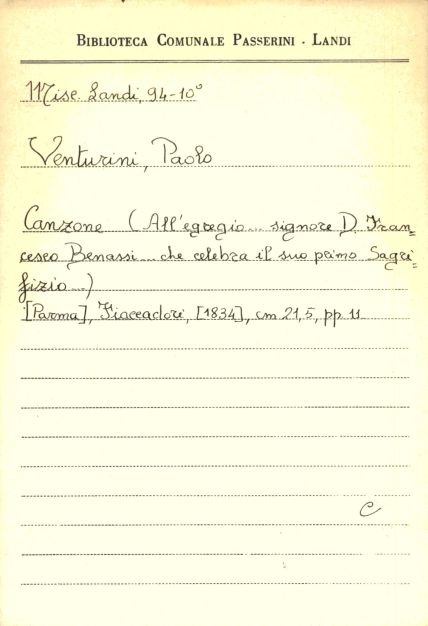 BIBLIOTECA COMUNALE PASSERINI - LANDI
Misc. Landi, 94-10°
Venturini, Paolo
Canzone (All'egregio... signore D. Fran=
cesco Benassi... che celebra il suo primo Sagri=
fizio...)
[Parma], Fiaccadori, [1834], cm 21,5, pp. 11
C